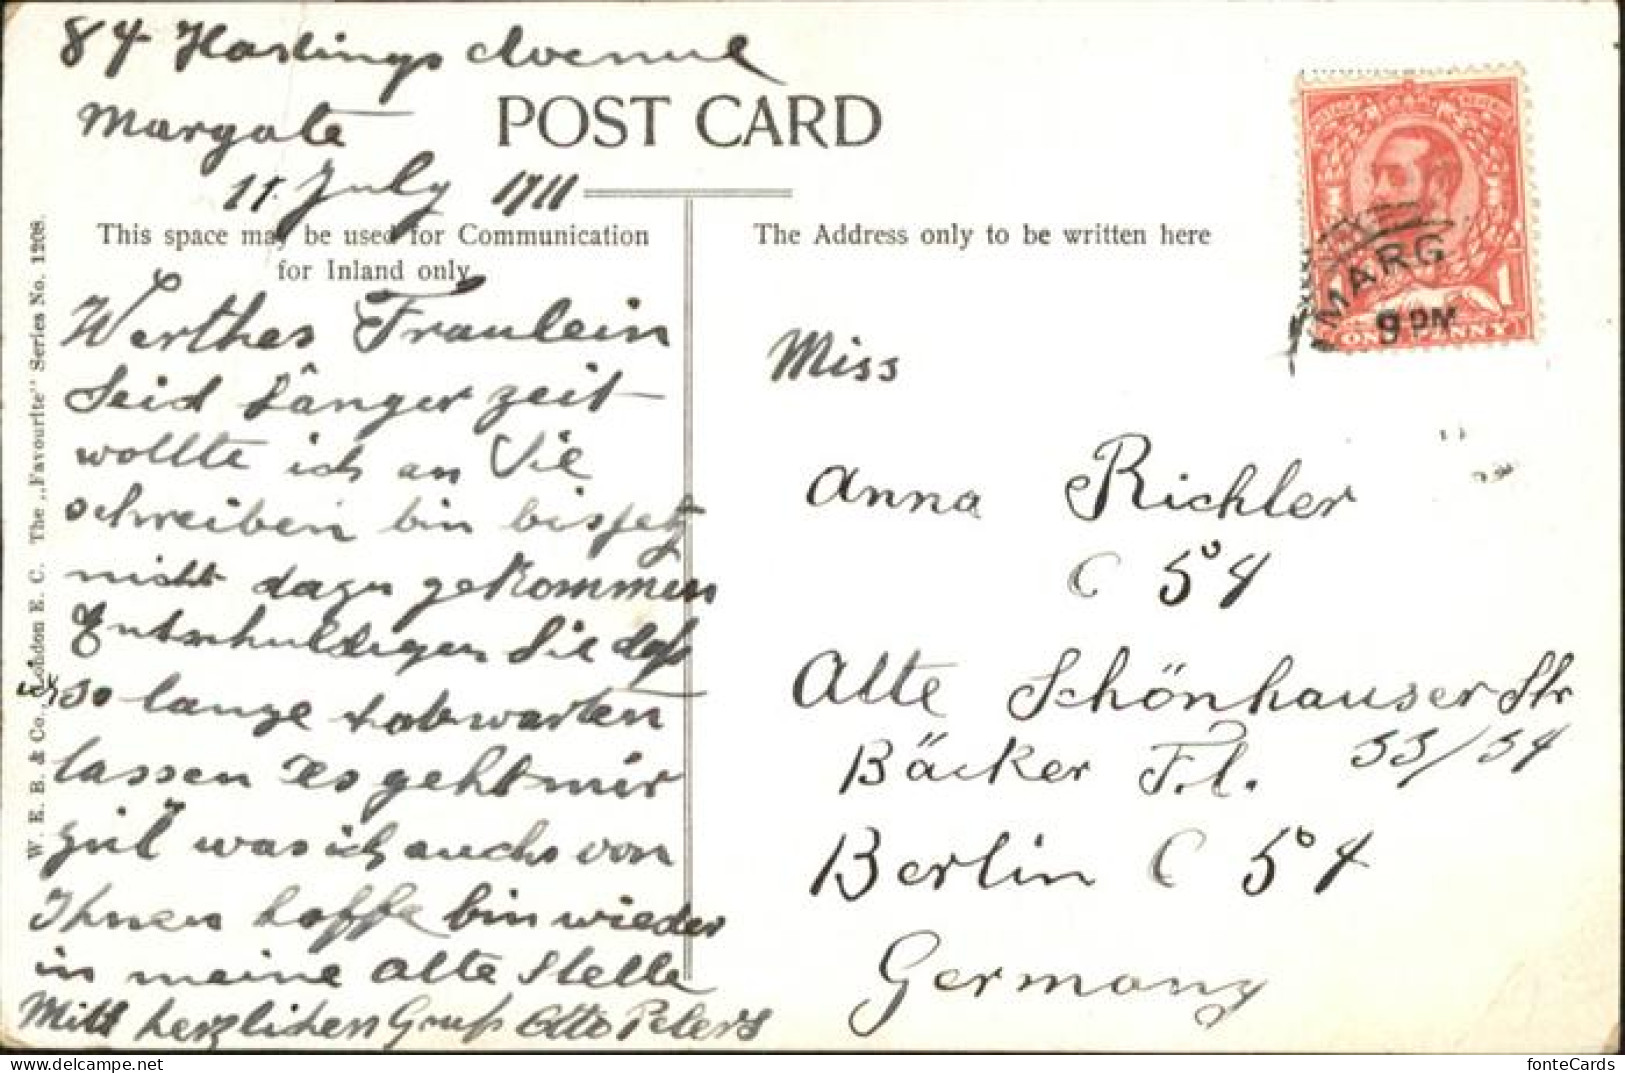 84 Hastings Avenue
Margate
11. July 1911
POST CARD
This space may be used for Communication
for Inland only
The Address only to be written here
Werthes Fraulein
Seid länger zeit
wollte ich an Sie
schreiben bin bis jetz
nicht dazu gekommen
Entschuldigen Sie daß
ich so lange habe warten
lassen es geht mir
gut was ich auch von
Ihnen hoffe bin wieder
in meine alte Stelle
Mitt herzlichen Gruß Otto Peters
Miss
Anna Richler
C 54
Alte Schönhauser Str
33/34
Bäcker
Berlin C 54
Germany
MARG
9 PM
ONE PENNY
1
W. E. B. & Co., London E. C. The „Favourite" Series No. 1208.
fonteCards